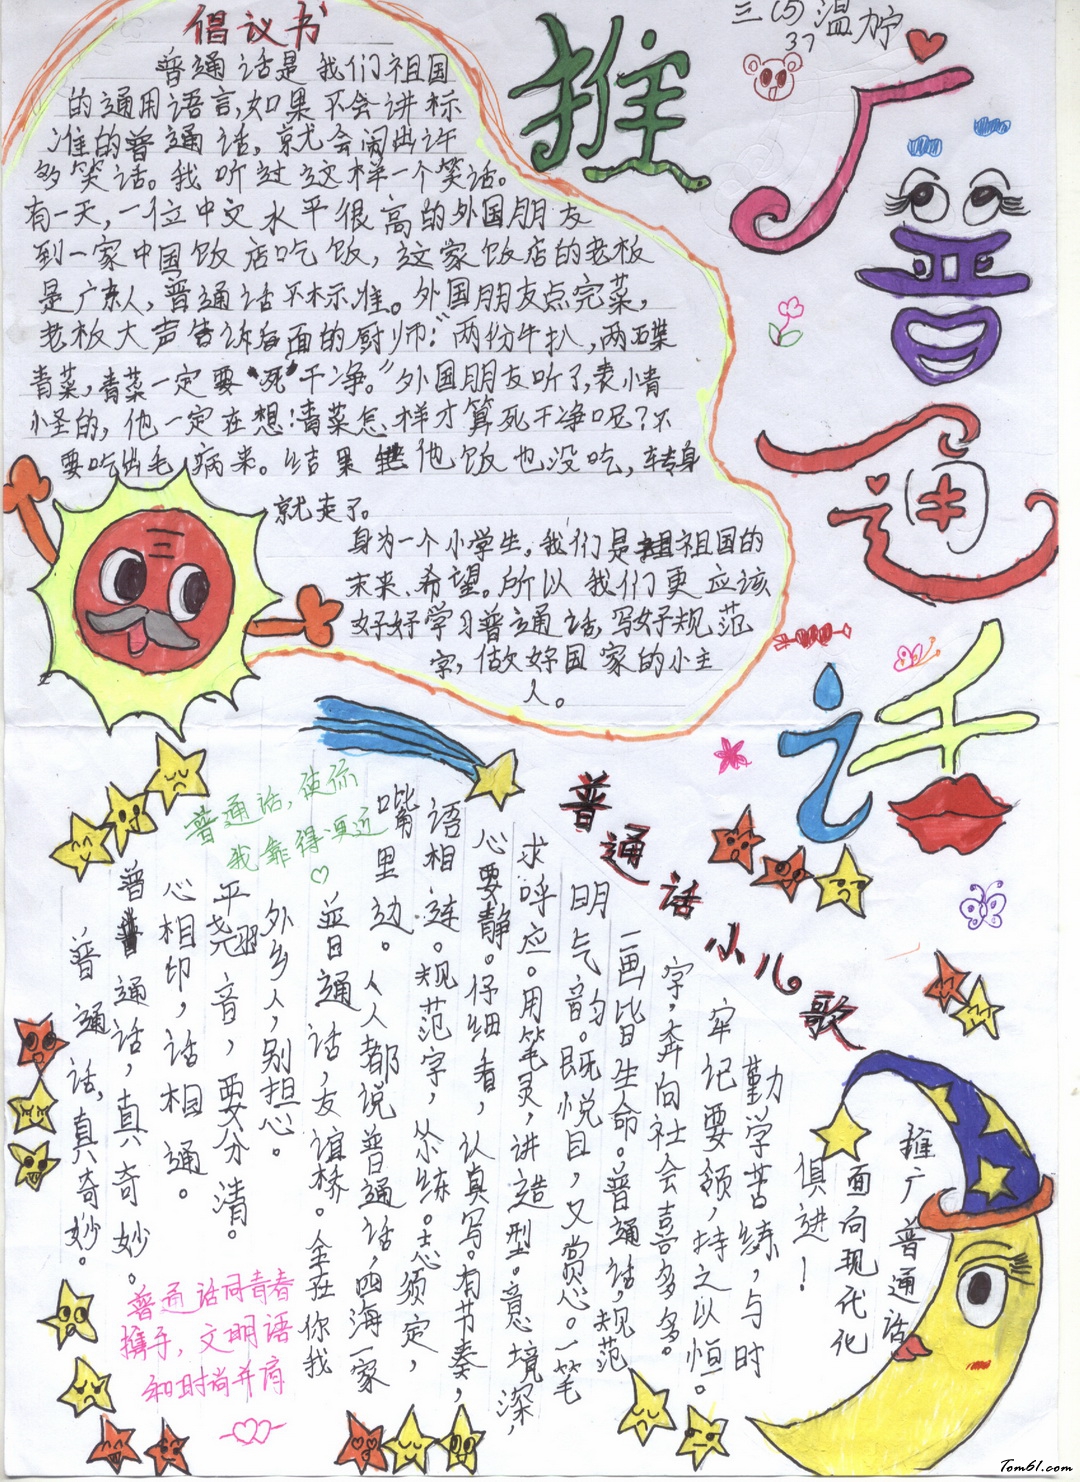 三(5) 温柠
37
推广普通话
倡议书
普通话是我们祖国
的通用语言,如果不会讲标
准的普通话,就会闹出许
多笑话。我听过这样一个笑话。
有一天,一位中文水平很高的外国朋友
到一家中国饭店吃饭,这家饭店的老板
是广东人,普通话不标准。外国朋友点完菜,
老板大声告诉后面的厨师:"两份牛扒,两碟
青菜,青菜一定要"死"干净。"外国朋友听了,表小青
小圣的,他一定在想:青菜怎样才算死干净呢?不
要吃出毛病来。结果他饭也没吃,转身
就走了。
身为一个小学生,我们是祖国的
未来、希望。所以我们更应该
好好学习普通话,写好规范
字,做好国家的小主
人。
普通话,使你
我靠得更近
普通话小儿歌
普通话,真奇妙。
普通话,真奇妙。
心相印,话相通。
平翘音,要分清。
外乡人,别担心。
普通话,友谊桥。全在你我
嘴里边。人人都说普通话,四海一家
语相连。规范字,练。志须定,
心要静。仔细看,认真写。有节奏,
求呼应。用笔灵,讲造型。意境深,
明气韵。既悦目,又赏心。一笔
一画皆生命。普通话,规范
字,奔向社会喜多多。
牢记要领,持之以恒。
勤学苦练,与时
俱进!
推广普通话
面向现代化
普通话同青春
携手,文明语
和时尚并肩
Tom61.com